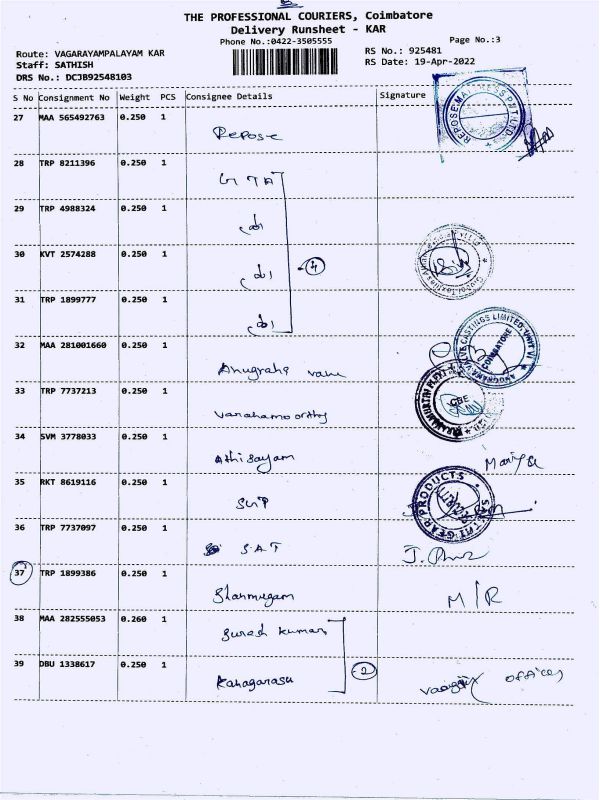 THE PROFESSIONAL COURIERS, Coimbatore
Delivery Runsheet - KAR
Phone No.:0422-3505555
Page No.:3
Route: VAGARAYAMPALAYAM KAR
RS No.: 925481
Staff: SATHISH
RS Date: 19-Apr-2022
DRS No.: DCJB92548103
S No Consignment No Weight PCS Consignee Details Signature
27 MAA 565492763 0.250 1 Repose
REPOSE MATTRESS PVT LTD
28 TRP 8211396 0.250 1 GTA
29 TRP 4988324 0.250 1
30 KVT 2574288 0.250 1
4
31 TRP 1899777 0.250 1
32 MAA 281001660 0.250 1 Anugraha valve
ANUGRAHA VALVE CASTINGS LIMITED, UNIT VI
COIMBATORE
33 TRP 7737213 0.250 1 Vanahamoorthy
CBE
34 SVM 3778033 0.250 1 Athisayam
35 RKT 8619116 0.250 1 SKP
GEAR PRODUCTS
36 TRP 7737097 0.250 1 S.A.T
37 TRP 1899386 0.250 1 Shanmugam M/R
38 MAA 282555053 0.260 1 Suresh kumar
2
39 DBU 1338617 0.250 1 Kanagarasu
offices